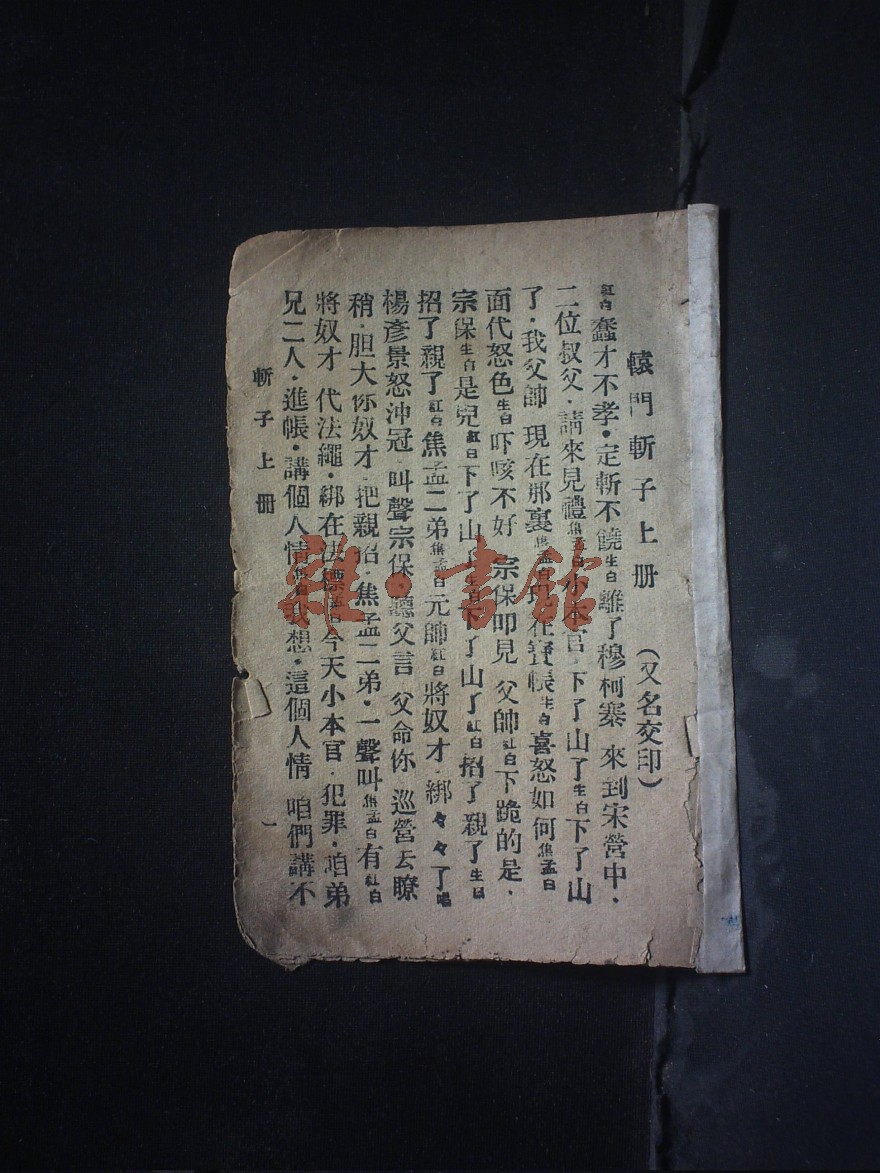 轅門斬子上册(又名交印)
紅白蠢才不孝·定斬不饒生白離了穆柯寨 來到宋營中·
二位叔父·請來見禮焦孟白小本官·下了山了生白下了山
了·我父帥 現在那裏焦孟白現在寶帳生白喜怒如何焦孟白
面代怒色生白吓咳不好 宗保叩見 父帥紅白下跪的是·
宗保生白是兒紅白下了山了生白下了山了紅白招了親了生白
招了親了紅白焦孟二弟焦孟白元帥紅白將奴才·綁々々了唱
楊彥景怒沖冠·叫聲宗保·聽父言 父命你 巡營去瞭
稍·胆大你奴才·把親招·焦孟二弟·一聲叫焦孟白有紅白
將奴才 代法繩·綁在法標 今天小本官·犯罪·咱弟
兄二人·進帳·講個人情 我想·這個人情 咱們講不
斬子上册 一
雜·書館